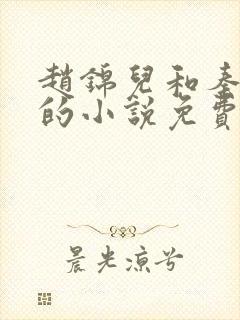 趙錦兒和秦
的小說免費
晨光涼兮